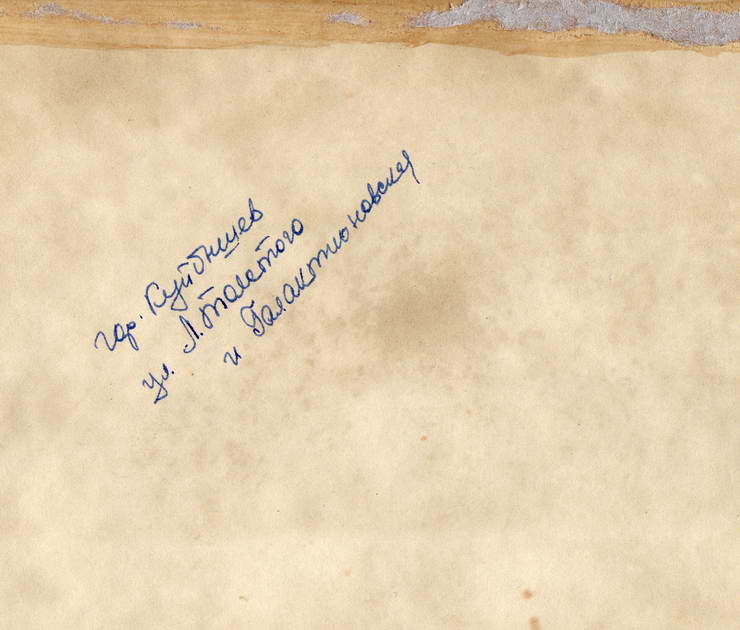 гор. Куйбышев
ул. Л. Толстого
и Галактионовская